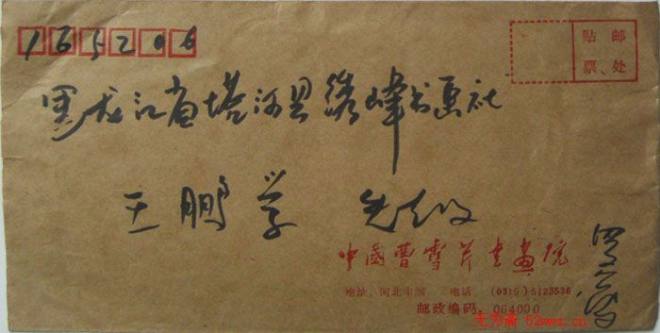 165206
贴邮
票处
黑龙江省塔河县绣峰书画社
王鹏学 先生收
中國曹雪芹書畫院
地址：河北丰润 电话：(0315)5123536
邮政编码：064000